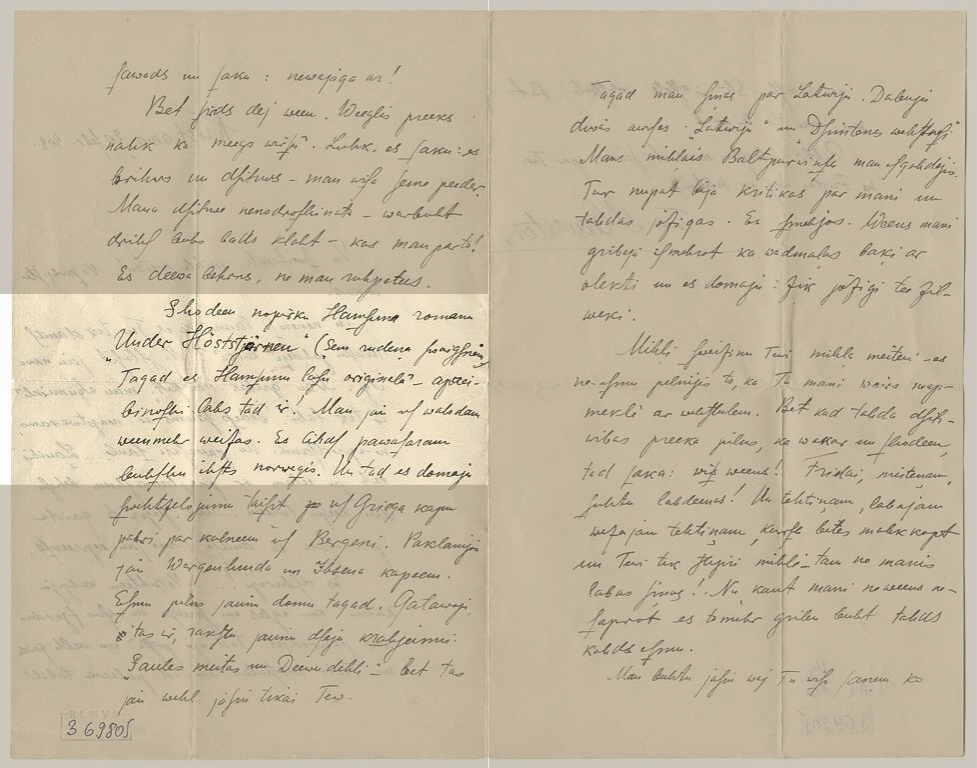 sawads un saku: newajaga ar!
Bet sirds dej ween. Weeglis preeks
nahk kà meegs wirsū. Luhk, es saku: es
brihws un dsihws – man wisa seme peeder.
Mana dsihwe nenodroschinata – warbuht
drihs buhs bads klaht – kas man par to!
Es deewa behrns, ne man ruhpetees.
Schodeen nopirku Hamsuna romanu
"Under Höststjärnen" (Sem rudens swaigsnem)
Tagad es Hamsunu lasu originelā – apsei-
binoschi labs tad ir! Man jau uf walodam
weenmehr weizas. Es lihds pawasaram
buhschu ihsts norwegis. Un tad es domaju
uf Griega kapu
pahri par kalneem uf Bergeni. Paklanijos
jau Wergenlunda un Ibsena kapeem.
Esmu pilns jaunu domu tagad. Gatawoju,
tas ir, rakstu jaunu dseju krahjumu
"Saules meitas un Deewu dehli" – bet tas
jau wehl jasin tikai Tew.
369805
Tagad man sinas par Latwiju. Dabuju
diwās awises "Latwiju" un "Dsimtenes wehstnesi"
Mans mihlais Baltpurwinsch man
Tur nupat bija kritikas par mani un
tahdas jozigas. Es smehjos. Weens mani
gribeja ismehrot kà wadmalas baki ar
olekti un es domaju: zik jozigi tee zil-
weki.
Mihļi sweizinu Tewi mihļā meiten – es
ne-esmu pelnijis to, ka Tu mani wairs neap-
meklē ar wehstulem. Bet kad tahda dsih-
wibas preeka pilns, kà wakar un schodeen,
tad saka: wiss weens! Fridai, meitenam,
suhtu labdeenas! Un tehtiņam, labajam
wezajam tehtiņam, kursch bites mahk kopt
un Tewi tik stipri mihlē – tam no manis
labas sinas! Nu kaut mani neweens ne-
saprot es tomehr gribu buht tahds
kahds esmu.
Man buhtu jasin waj Tu wisu sanem ko